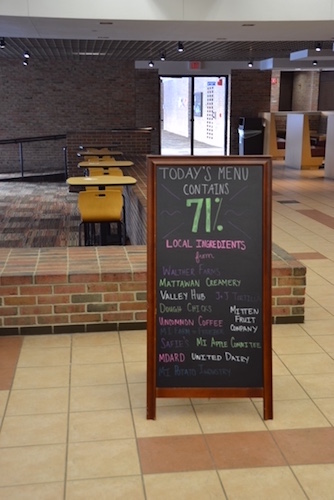 TODAY'S MENU
CONTAINS
71%
LOCAL INGREDIENTS
from
WALTHER FARMS
MATTAWAN CREAMERY
VALLEY HUB
DOUGH CHICKS
MITTEN
FRUIT
COMPANY
UNCOMMON COFFEE
MI APPLE COMMITTEE
MDARD UNITED DAIRY
MI POTATO INDUSTRY